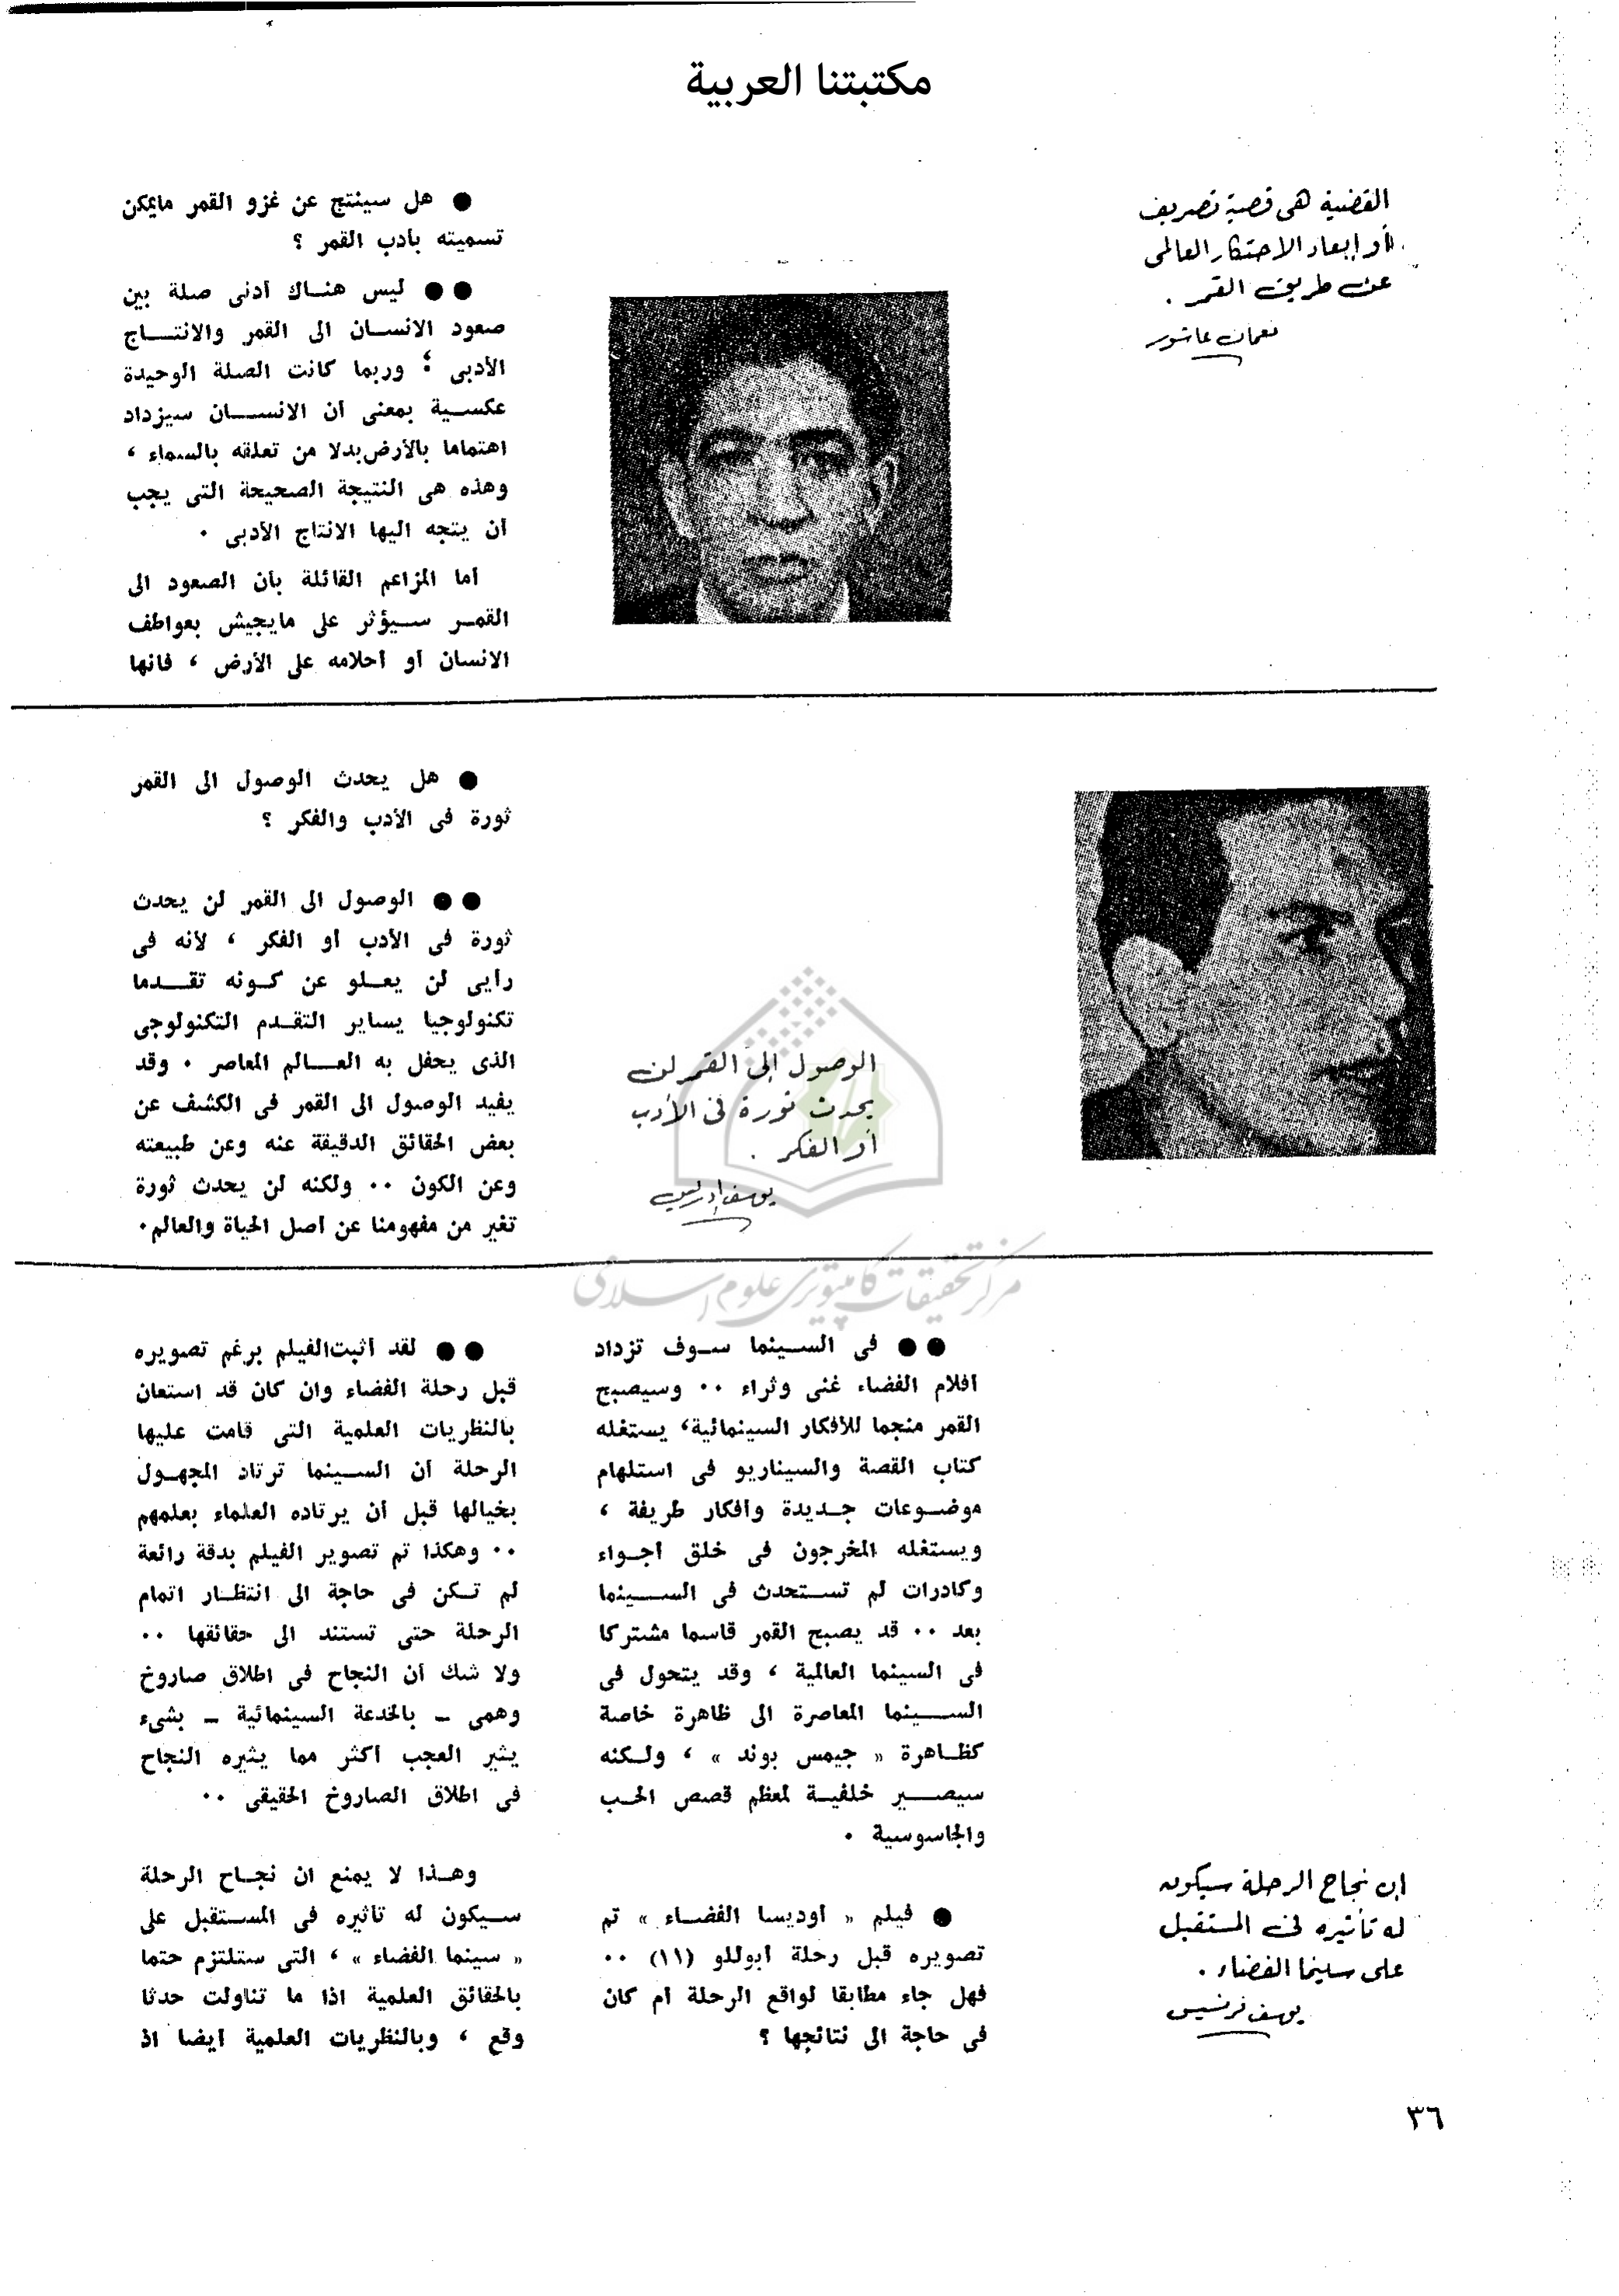 مكتبتنا العربية
القضية هى قصية تصريف
أو إبعاد الاحتكار العالمى
عن طريق القمر .
نعمان عاشور
● هل سينتج عن غزو القمر مايمكن
تسميته بأدب القمر ؟
●● ليس هنـاك أدنى صلة بين
صعود الانسـان الى القمر والانتــاج
الأدبى ؛ وربما كانت الصلة الوحيدة
عكسـية بمعنى أن الانســان سيزداد
اهتماما بالأرض بدلا من تعلقه بالسماء ،
وهذه هى النتيجة الصحيحة التى يجب
أن يتجه اليها الانتاج الأدبى ٠
أما المزاعم القائلة بأن الصعود الى
القمـر سـيؤثر على مايجيش بعواطف
الانسان أو أحلامه على الأرض ، فانها
الوصول إلى القمر لن
يحدث ثورة فى الأدب
أو الفكر .
يوسف إدريس
● هل يحدث الوصول الى القمر
ثورة فى الأدب والفكر ؟
●● الوصول الى القمر لن يحدث
ثورة فى الأدب أو الفكر ، لأنه فى
رأيى لن يعـلو عن كـونه تقـدما
تكنولوجيا يساير التقـدم التكنولوجى
الذى يحفل به العـالم المعاصر ٠ وقد
يفيد الوصول الى القمر فى الكشف عن
بعض الحقائق الدقيقة عنه وعن طبيعته
وعن الكون ٠٠ ولكنه لن يحدث ثورة
تغير من مفهومنا عن أصل الحياة والعالم٠
مركز تحقيقات كامپيوترى علوم اسلامى
●● فى السـينما سـوف تزداد
أفلام الفضاء غنى وثراء ٠٠ وسيصبح
القمر منجما للأفكار السينمائية، يستغله
كتاب القصة والسيناريو فى استلهام
موضـوعات جـديدة وأفكار طريفة ،
ويستغله المخرجون فى خلق أجـواء
وكادرات لم تسـتحدث فى السـينما
بعد ٠٠ قد يصبح القمر قاسما مشتركا
فى السينما العالمية ، وقد يتحول فى
السـينما المعاصرة الى ظاهرة خاصة
كظـاهرة « جيمس بوند » ، ولـكنه
سيصـير خلفيـة لمعظم قصص الحـب
والجاسوسية ٠
● فيلم « أوديسا الفضـاء » تم
تصويره قبل رحلة أبوللو (١١) ٠٠
فهل جاء مطابقا لواقع الرحلة أم كان
فى حاجة الى نتائجها ؟
●● لقد أثبت الفيلم برغم تصويره
قبل رحلة الفضاء وان كان قد استعان
بالنظريات العلمية التى قامت عليها
الرحلة أن السـينما ترتاد المجهـول
بخيالها قبل أن يرتاده العلماء بعلمهم
٠٠ وهكذا تم تصوير الفيلم بدقة رائعة
لم تـكن فى حاجة الى انتظـار اتمام
الرحلة حتى تستند الى حقائقها ٠٠
ولا شك أن النجاح فى اطلاق صاروخ
وهمى ــ بالخدعة السينمائية ــ بشىء
يثير العجب أكثر مما يثيره النجاح
فى اطلاق الصاروخ الحقيقى ٠٠
وهـذا لا يمنع أن نجـاح الرحلة
سـيكون له تأثيره فى المسـتقبل على
« سينما الفضاء » ، التى ستلتزم حتما
بالحقائق العلمية اذا ما تناولت حدثا
وقع ، وبالنظريات العلمية أيضا اذ
إن نجاح الرحلة سيكون
له تأثيره فى المستقبل
على سينما الفضاء .
يوسف فرنسيس
٣٦